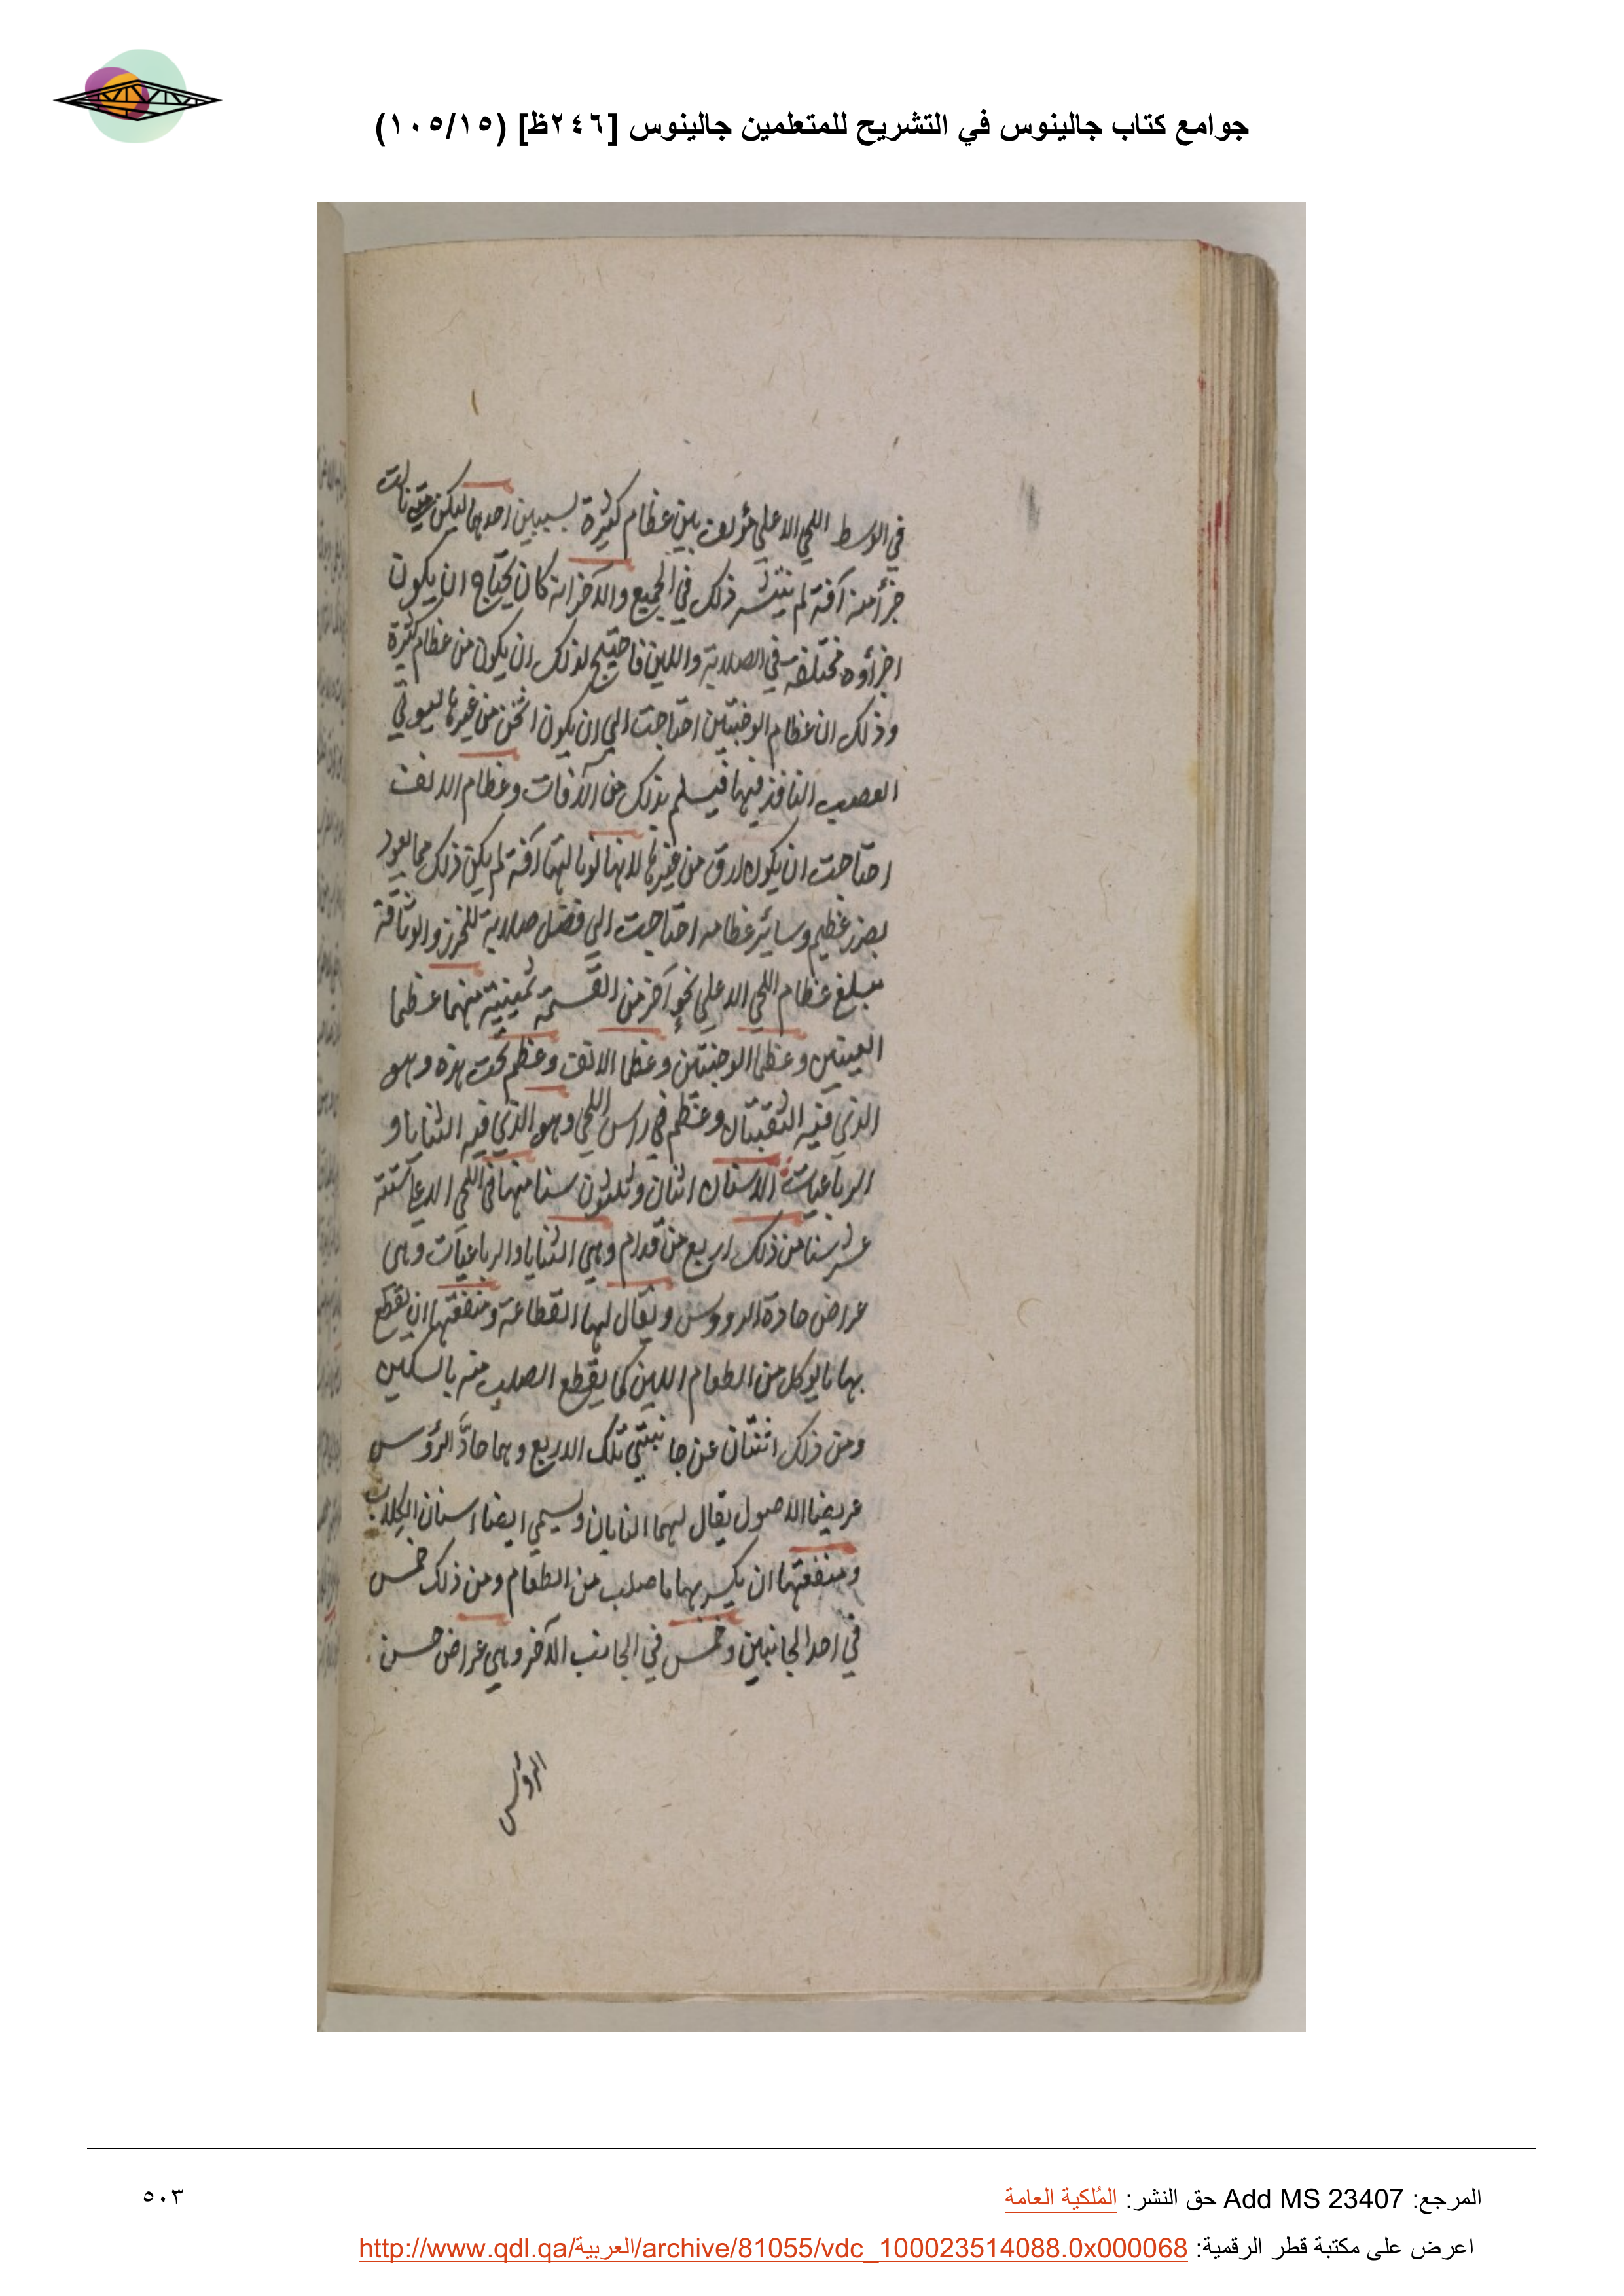 جوامع كتاب جالينوس في التشريح للمتعلمين جالينوس [٢٤٦ظ] (١٠٥/١٥)
في الوسط اللحي الاعلي مؤلف من عظام كثيرة لسببين احدهما ليكن متي نالت
جزأ منه آفة لم ينتشر ذلك في الجميع والآخر انه كان يحتاج ان يكون
اجزأوه مختلفة في الصلابة واللين فاحتيج لذلك ان يكون من عظام كثيرة
وذلك ان عظام الوجنتين احتاجت الي ان يكون اثخن من غيرها ليوقي
العصب النافذ فيها فيسلم بذلك من الآفات وعظام الانف
احتاجت ان يكون ارق من غيرها لانها لو نالتها آفة لم يكن ذلك مما يعود
بضرر عظيم وسائر عظامه احتاجت الي فضل صلابة للحرز والوثاقة
مبلغ عظام اللحي الاعلي نحو آخر من القسمة ثمينية منهما عظما
العينين وعظما الوجنتين وعظما الانف وعظم تحت هذه وهو
الذي فيه الثقبتان وعظم في راس اللحي وهو الذي فيه الثنايا و
الرباعيات الاسنان اثنان وثلثون سنا منها في اللحي الاعلي ستة
عشر سنا من ذلك اربع من قدام وهي الثنايا والرباعيات وهي
عراض حادة الرووس ويقال لها القطاعة ومنفعتها ان يقطع
بها ما يوكل من الطعام اللين كما يقطع الصلب منه بالسكين
ومن ذلك اثنتان عن جانبتي تلك الاربع وهما حادّ الرؤس
عريضا الاصول يقال لهما النابان وسمي ايضا اسنان الكلاب
ومنفعتها ان يكسر بهما ما صلب من الطعام ومن ذلك خمس
في احد الجانبين وخمس في الجانب الآخر وهي عراض خسن
الرؤس
المرجع: Add MS 23407 حق النشر: المُلكية العامة
٥٠٣
اعرض على مكتبة قطر الرقمية: http://www.qdl.qa/العربية/archive/81055/vdc_100023514088.0x000068